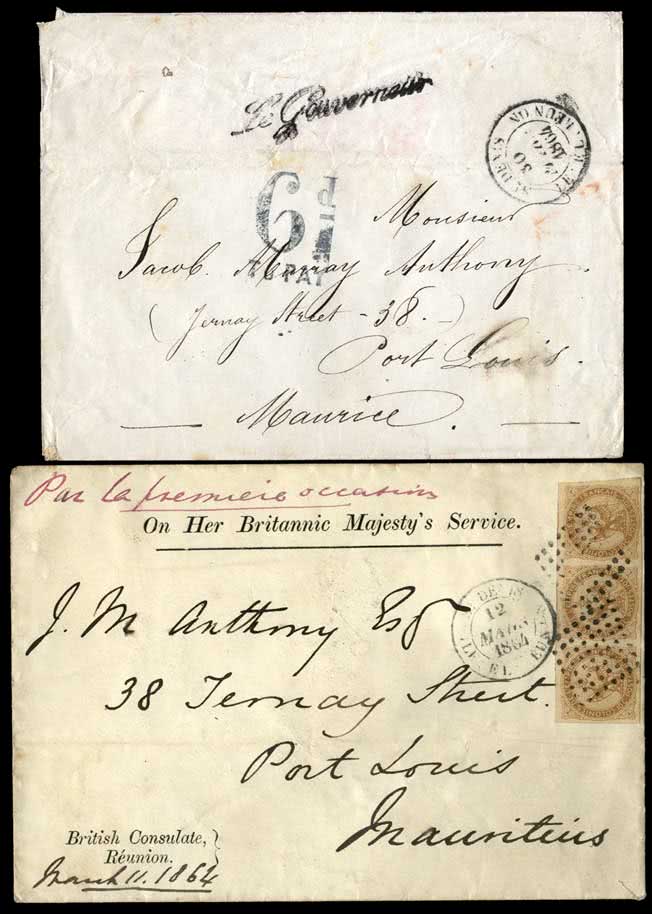 Le Gouverneur
ST DENIS
ILE DE LA REUNION
30
1864
6d
TO PAY
Monsieur
Jacob Murray Anthony
(Ternay Street - 38 -)
Port Louis.
Maurice.
Par la première occasion
On Her Britannic Majesty's Service.
J. M Anthony Esqr
38 Ternay Street.
Port Louis
Mauritius
ST DENIS
12
MARS
1864
British Consulate,
Réunion.
March 11. 1864